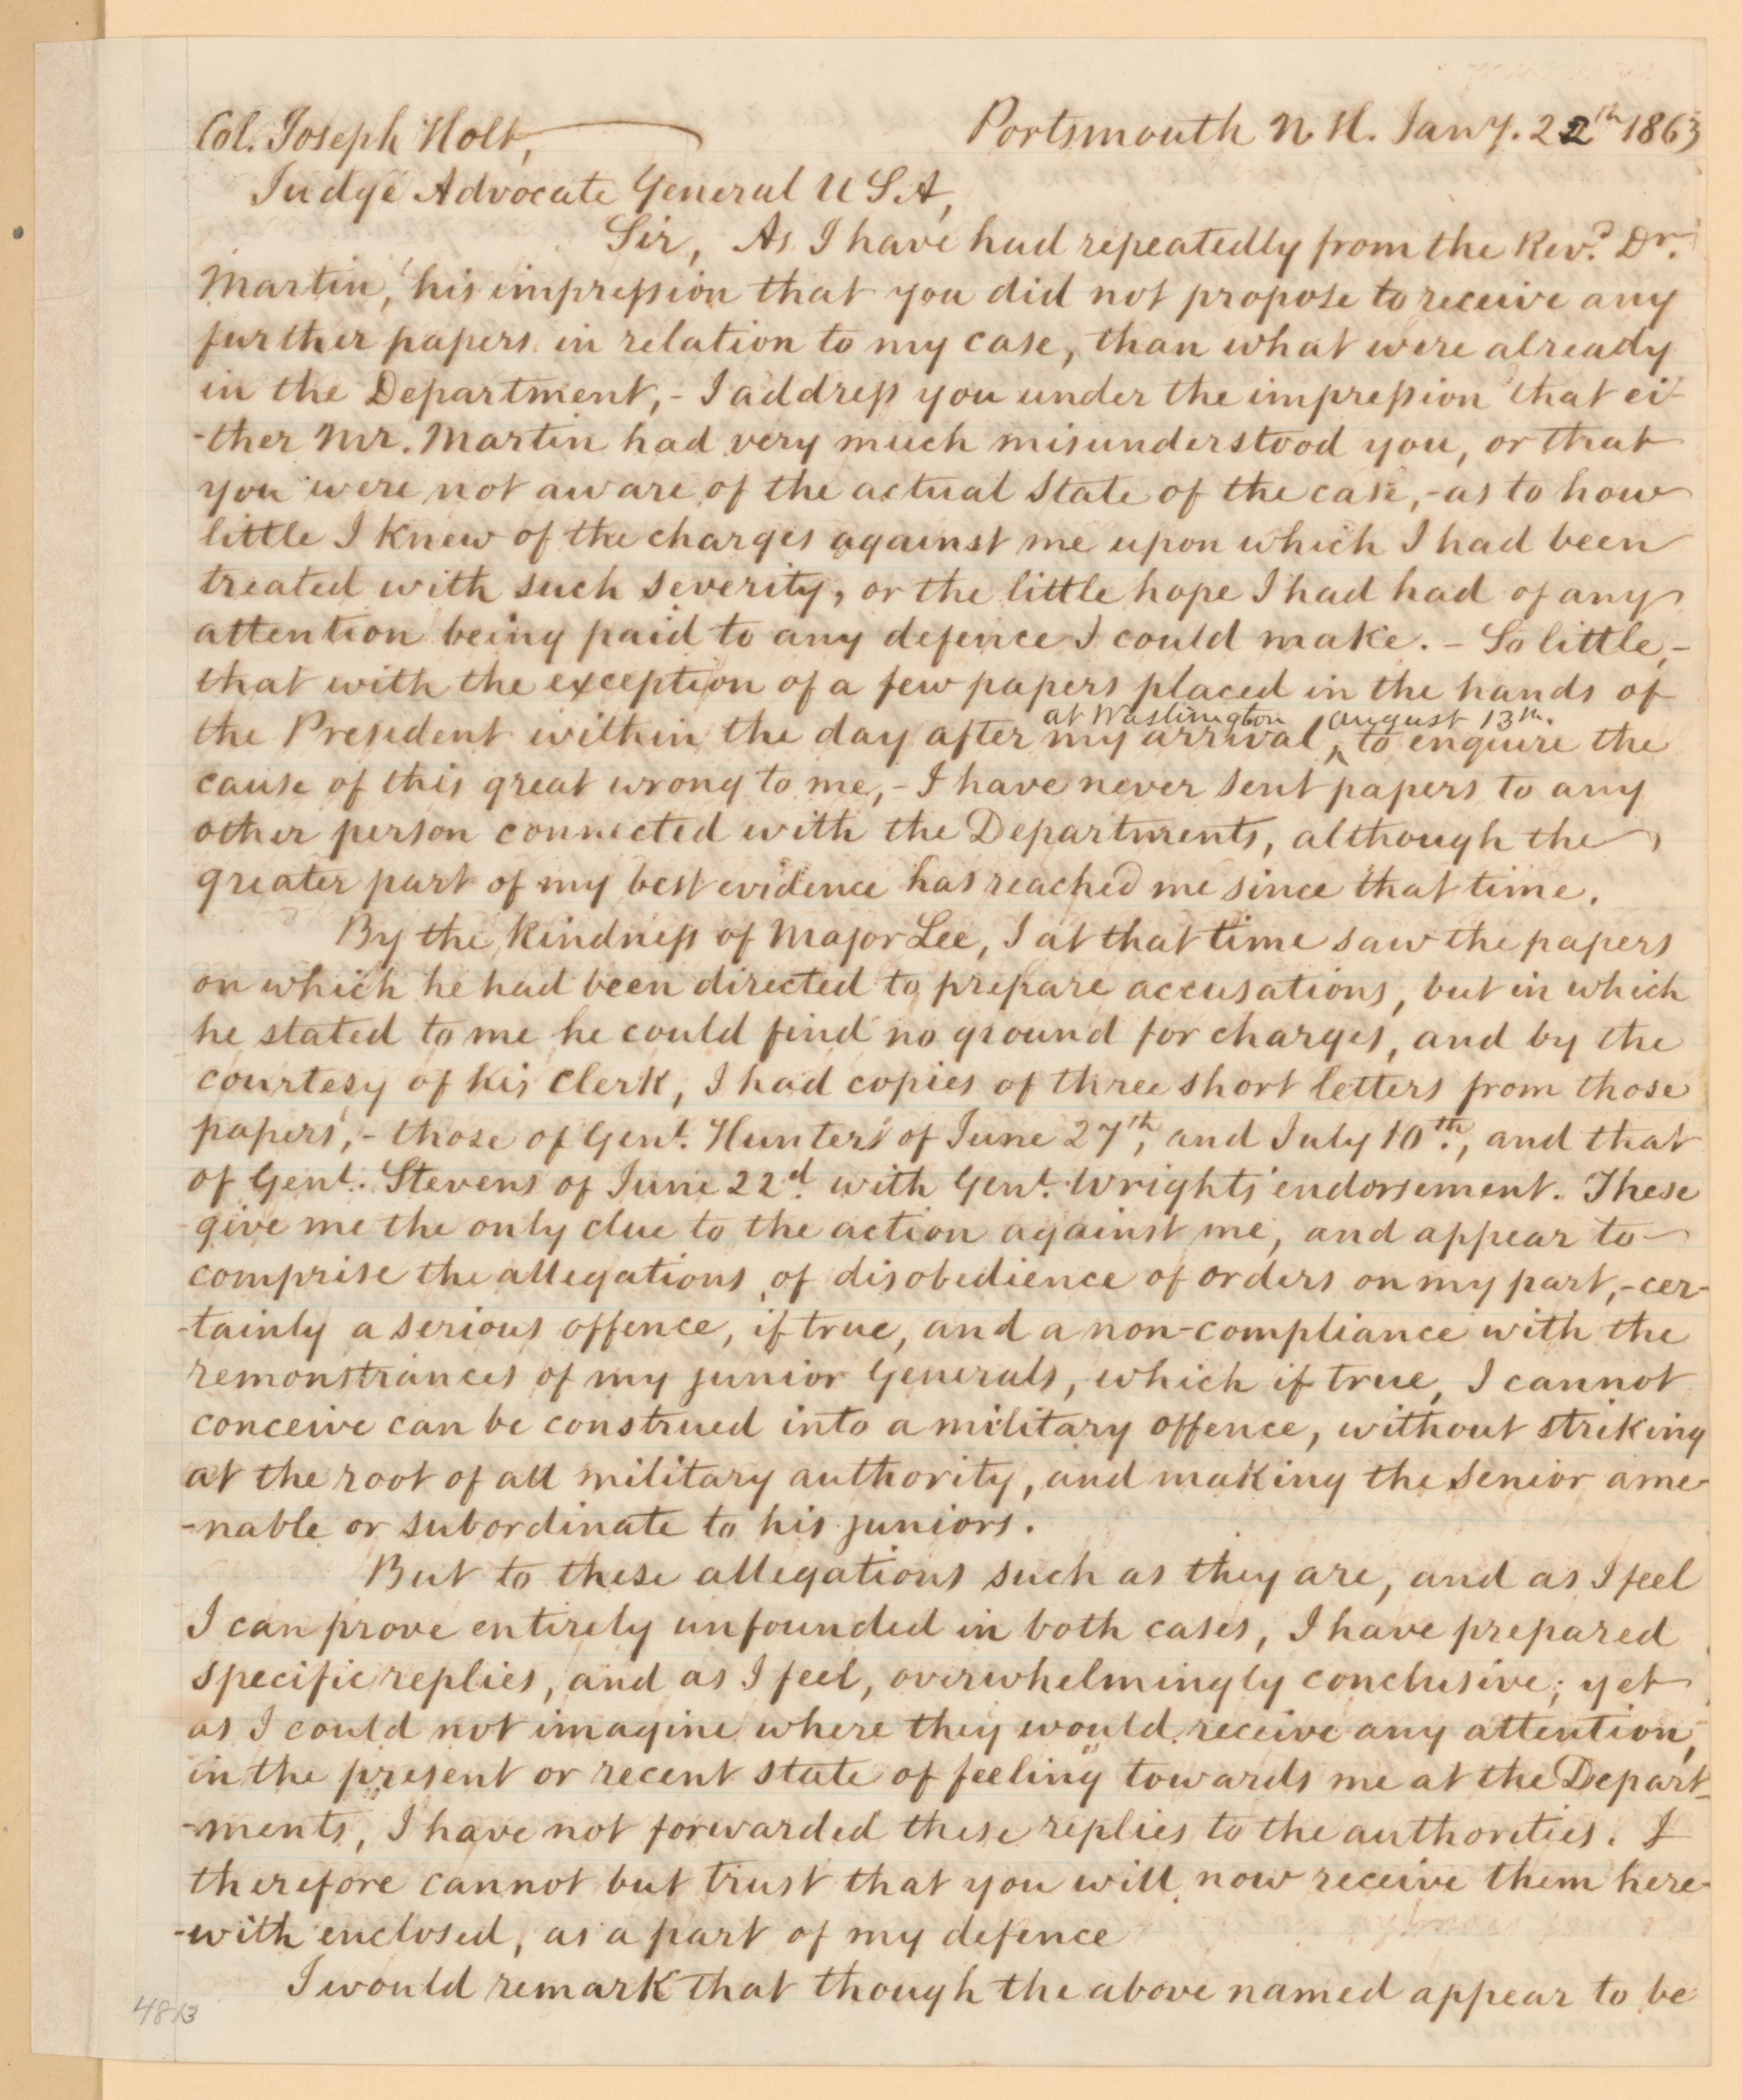 Portsmouth N H. Jany. 22th 1863
Col. Joseph Holt,
Judge Advocate General U S A,
Sir, As I have had repeatedly from the Revd. Dr.
Martin, his impression that you did not propose to receive any
further papers in relation to my case, than what were already
in the Department, - I address you under the impression that ei-
-ther Mr. Martin had very much misunderstood you, or that
you were not aware of the actual state of the case, - as to how
little I knew of the charges against me upon which I had been
treated with such severity, or the little hope I had had of any
attention being paid to any defence I could make. - So little, -
that with the exception of a few papers placed in the hands of
at Washington august 13th.
the President within the day after my arrival ^ to enquire the
cause of this great wrong to me, - I have never sent papers to any
other person connected with the Departments, although the
greater part of my best evidence has reached me since that time.
By the kindness of Major Lee, I at that time saw the papers
on which he had been directed to prepare accusations, but in which
he stated to me he could find no ground for charges, and by the
courtesy of his clerk, I had copies of three short letters from those
papers, - those of Genl. Hunters of June 27th, and July 10th., and that
of Genl. Stevens of June 22d. with Genl. Wrights endorsement. These
give me the only clue to the action against me, and appear to
comprise the allegations of disobedience of orders on my part, - cer-
-tainly a serious offence, if true, and a non-compliance with the
remonstrances of my junior Generals, which if true, I cannot
conceive can be construed into a military offence, without striking
at the root of all military authority, and making the senior ame-
-nable or subordinate to his juniors.
But to these allegations such as they are, and as I feel
I can prove entirely unfounded in both cases, I have prepared
specific replies, and as I feel, overwhelmingly conclusive; yet
as I could not imagine where they would receive any attention,
in the present or recent state of feeling towards me at the Depart-
-ments, I have not forwarded these replies to the authorities. I
therefore cannot but trust that you will now receive them here-
-with enclosed, as a part of my defence
I would remark that though the above named appear to be
4813